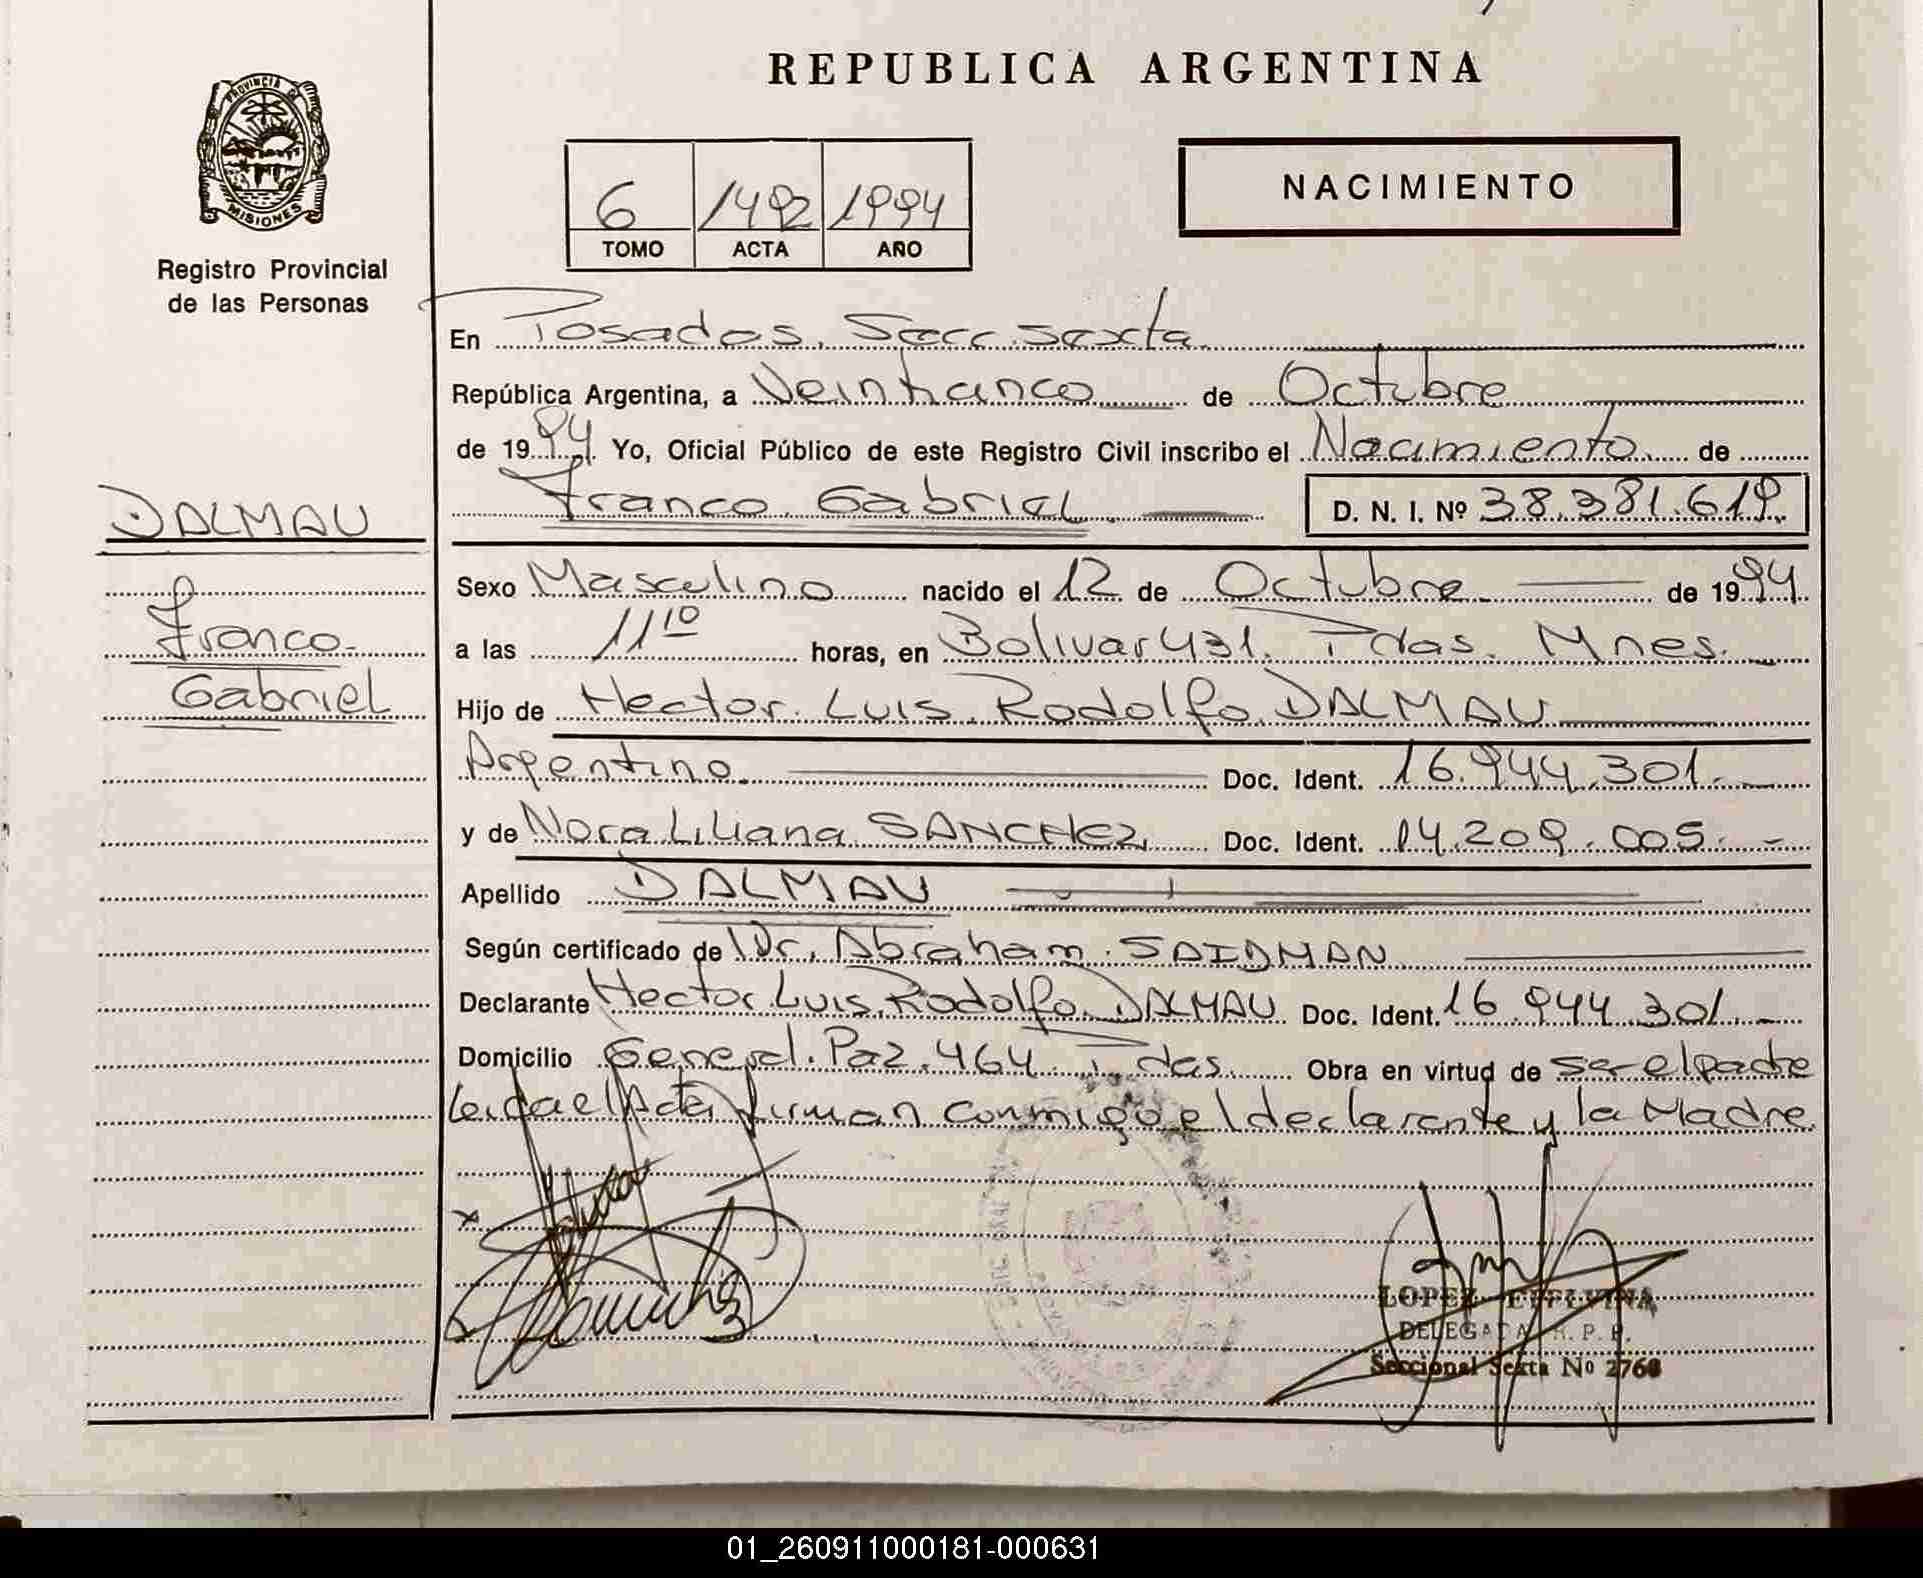 REPUBLICA ARGENTINA
PROVINCIA DE
MISIONES
Registro Provincial
de las Personas
6 1492 1994
TOMO ACTA AÑO
NACIMIENTO
En Posadas, Secc. sexta
República Argentina, a Veinticinco de Octubre
de 1994 Yo, Oficial Público de este Registro Civil inscribo el Nacimiento de
Franco Gabriel D. N. I. Nº 38.381.619
DALMAU
Franco
Gabriel
Sexo Masculino nacido el 12 de Octubre de 1994
a las 11 10 horas, en Bolivar 431. Pdas. Mnes.
Hijo de Hector Luis Rodolfo DALMAU
Argentino Doc. Ident. 16.944.301.
y de Nora Liliana SANCHEZ Doc. Ident. 14.209.005.
Apellido DALMAU
Según certificado de Dr. Abraham SAIDMAN
Declarante Hector Luis Rodolfo DALMAU Doc. Ident. 16.944.301.
Domicilio General Paz 464 Pdas. Obra en virtud de ser el padre
Leida el Acta firman conmigo el declarante y la Madre.
LOPEZ
DELEGADA R. P. P.
Seccional Sexta Nº 2768
01_260911000181-000631